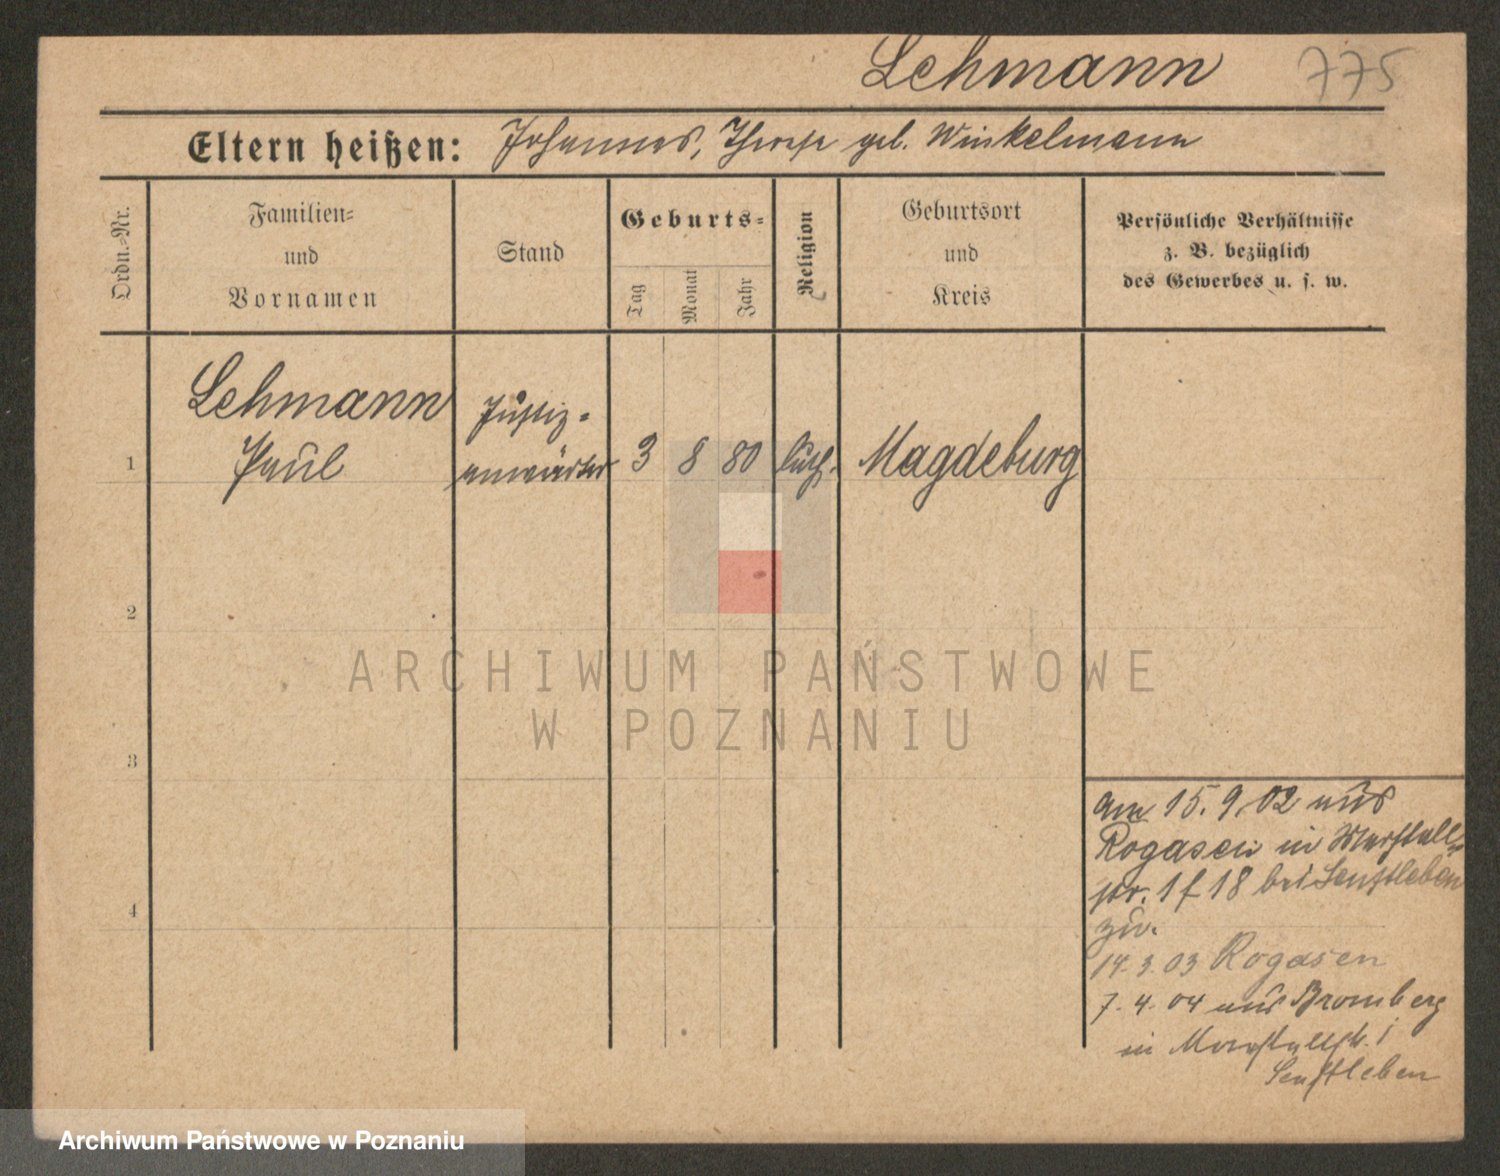 Lehmann 775
Eltern heißen: Johannes, Therese geb. Winkelmann
Ordn.=Nr.
Familien=
und
Vornamen
Stand
Geburts=
Tag
Monat
Jahr
Religion
Geburtsort
und
Kreis
Persönliche Verhältnisse
z. B. bezüglich
des Gewerbes u. s. w.
1
Lehmann
Paul
Justiz=
anwärter
3 8 80 luth. Magdeburg
2
3
4
am 15. 9. 02 aus
Rogasen in Marstall=
str. 1 f 18 bei Senftleben
zu.
14. 3. 03 Rogasen
7. 4. 04 aus Bromberg
in Marstallstr. 1
Senftleben
ARCHIWUM PAŃSTWOWE
W POZNANIU
Archiwum Państwowe w Poznaniu